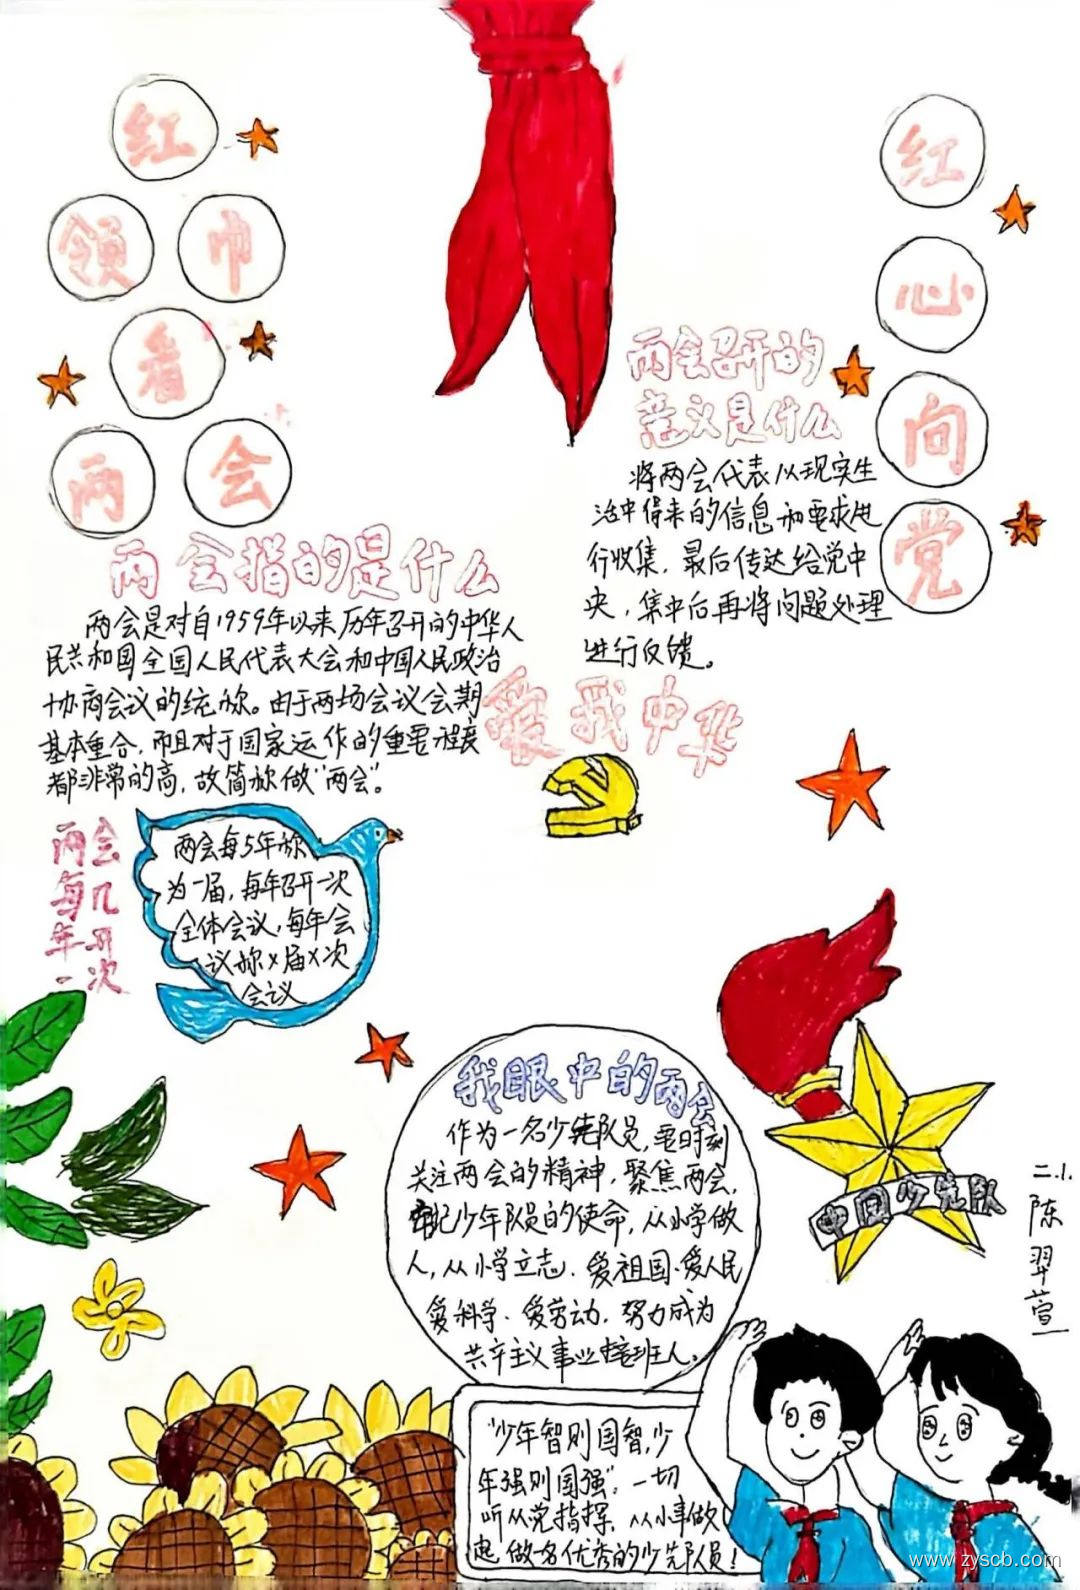 红
领巾
看
两会
红
心
向
党
两会指的是什么
两会是对自1959年以来历年召开的中华人
民共和国全国人民代表大会和中国人民政治
协商会议的统称。由于两场会议会期
基本重合,而且对于国家运作的重要程度
都非常的高,故简称做“两会”。
两会召开的
意义是什么
将两会代表从现实生
活中得来的信息和要求进
行收集,最后传达给党中
央,集中后再将问题处理
进行反馈。
爱我中华
两会
每几
年开
一次
两会每5年称
为一届,每年召开一次
全体会议,每年会
议称x届x次
会议
我眼中的两会
作为一名少先队员,要时刻
关注两会的精神,聚焦两会,
牢记少年队员的使命,从小学做
人,从小学立志.爱祖国.爱人民
爱科学、爱劳动,努力成为
共产主义事业接班人。
中国少先队
二.1.
陈羿萱
“少年智则国智,少
年强则国强”,一切
听从党指挥,从小事做
起做名优秀的少先队员!
www.zyscb.com